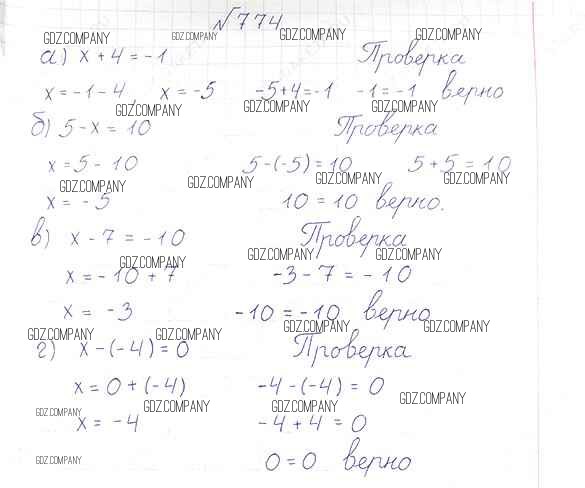 √774
GDZ.COMPANY GDZ.COMPANY GDZ.COMPANY GDZ.COMPANY
а) x + 4 = -1 Проверка
x = -1 - 4, x = -5 -5+4=-1 -1=-1 верно
GDZ.COMPANY GDZ.COMPANY GDZ.COMPANY
б) 5 - x = 10 Проверка
x = 5 - 10 5-(-5)=10 5+5=10
GDZ.COMPANY GDZ.COMPANY GDZ.COMPANY GDZ.COMPANY
x = -5 10 = 10 верно.
в) x - 7 = -10 Проверка
GDZ.COMPANY GDZ.COMPANY GDZ.COMPANY
x = -10 + 7 -3 - 7 = -10
x = -3 -10 = -10 верно
GDZ.COMPANY GDZ.COMPANY GDZ.COMPANY GDZ.COMPANY
г) x - (-4) = 0 Проверка
x = 0 + (-4) -4 - (-4) = 0
GDZ.COMPANY GDZ.COMPANY GDZ.COMPANY GDZ.COMPANY
x = -4 -4 + 4 = 0
GDZ.COMPANY 0 = 0 верно